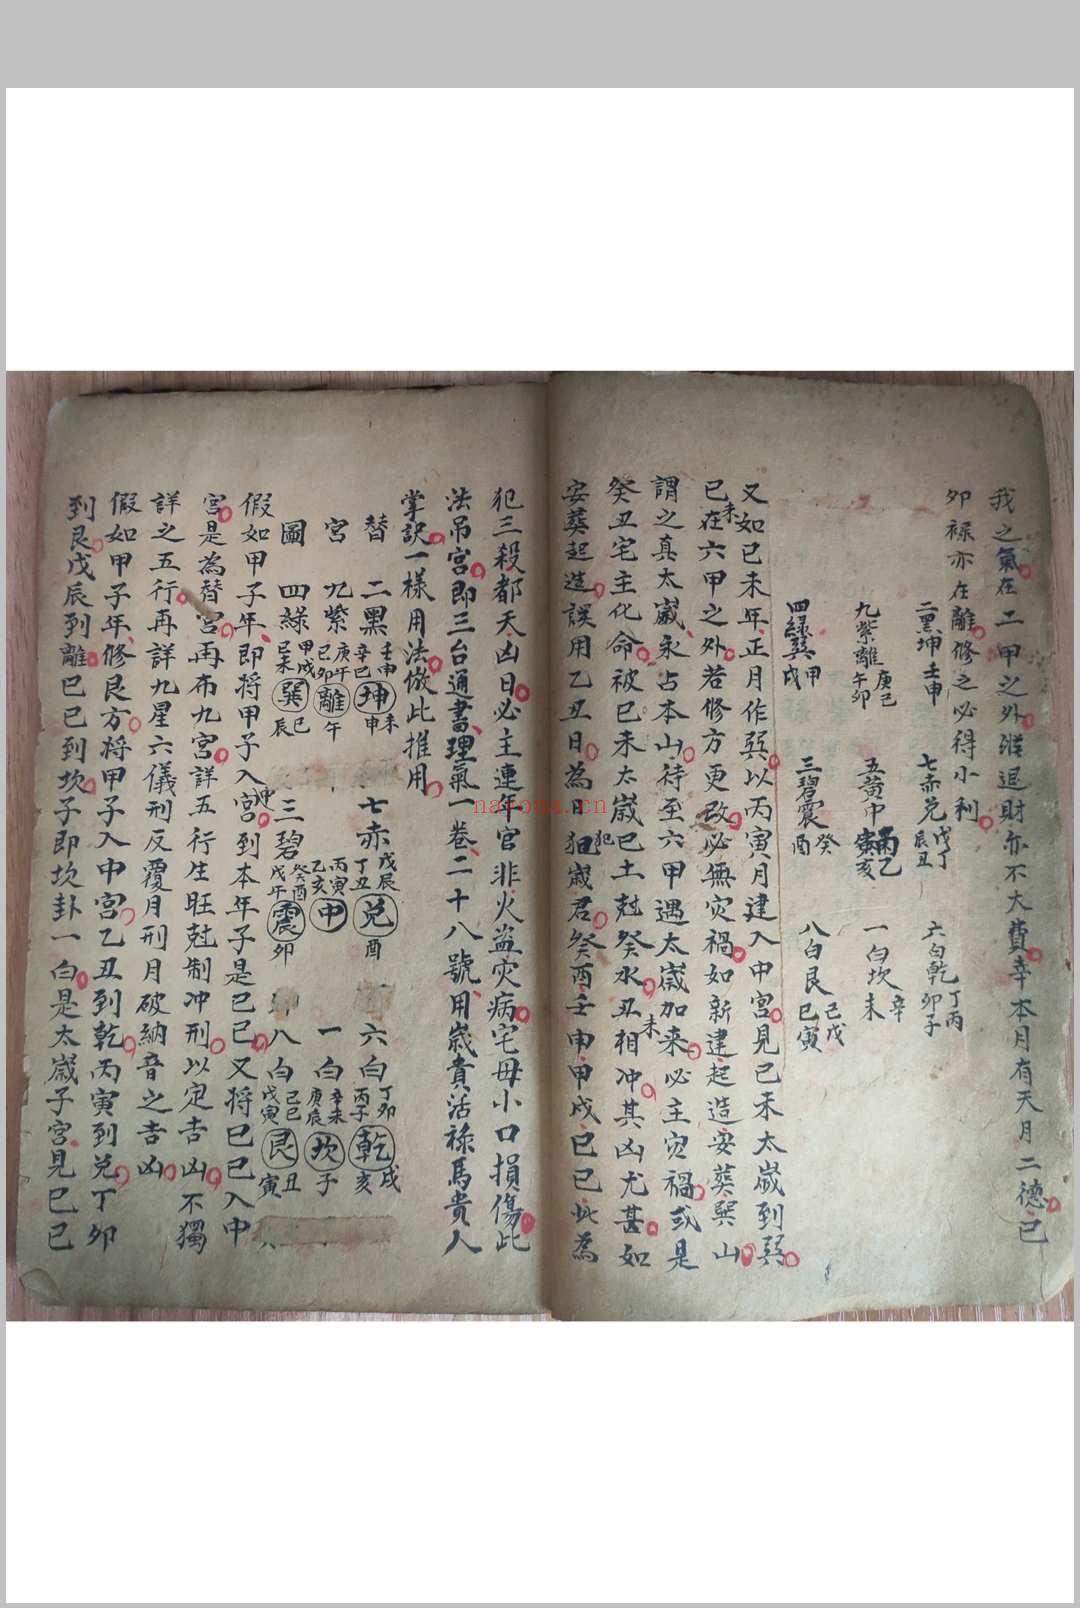 我之氣在二甲之外縱退財亦不大費幸本月有天月二德已
卯祿亦在離修之必得小利
二黑坤壬申 七赤兌戊丁辰丑 六白乾丁丙卯子
九紫離庚己午卯 五黃中丙乙寅亥 一白坎辛未
四綠巽甲戌 三碧震癸酉 八白艮己戊巳寅
又如己未年正月作巽以丙寅月建入中宮見己未太歲到巽
已未在六甲之外若修方更改必無灾禍如新建起造安葬巽山
謂之真太歲永占本山待至六甲遇太歲加来必主灾禍或是
癸丑宅主化命被己未太歲己土尅癸水丑未相冲其凶尤甚如
安葬起造誤用乙丑日為日犯歲君癸酉壬申甲戌己巳此為
犯三殺都天凶日必主連年官非火盗灾病宅母小口損傷此
法吊宮即三台通書理氣一卷二十八號用歲貴活祿馬貴人
掌訣一樣用法倣此推用
替 二黑壬申辛巳坤未申 七赤戊辰丁丑兌酉 六白丁卯丙子乾戌亥
宮 九紫庚午己卯離午 丙寅乙亥中 一白辛未庚辰坎子
圖 四綠甲戌己未巽巳辰 三碧癸酉戊午震卯 八白己巳戊寅艮丑寅
假如甲子年即将甲子入中宮到本年子是己巳又将己巳入中
宮是為替宮再布九宮詳五行生旺尅制冲刑以定吉凶不獨
詳之五行再詳九星六儀刑反覆月刑月破納音之吉凶
假如甲子年修艮方将甲子入中宮乙丑到乾丙寅到兌丁卯
到艮戊辰到離己巳到坎子即坎卦一白是太歲子宮見己巳
nayona.cn